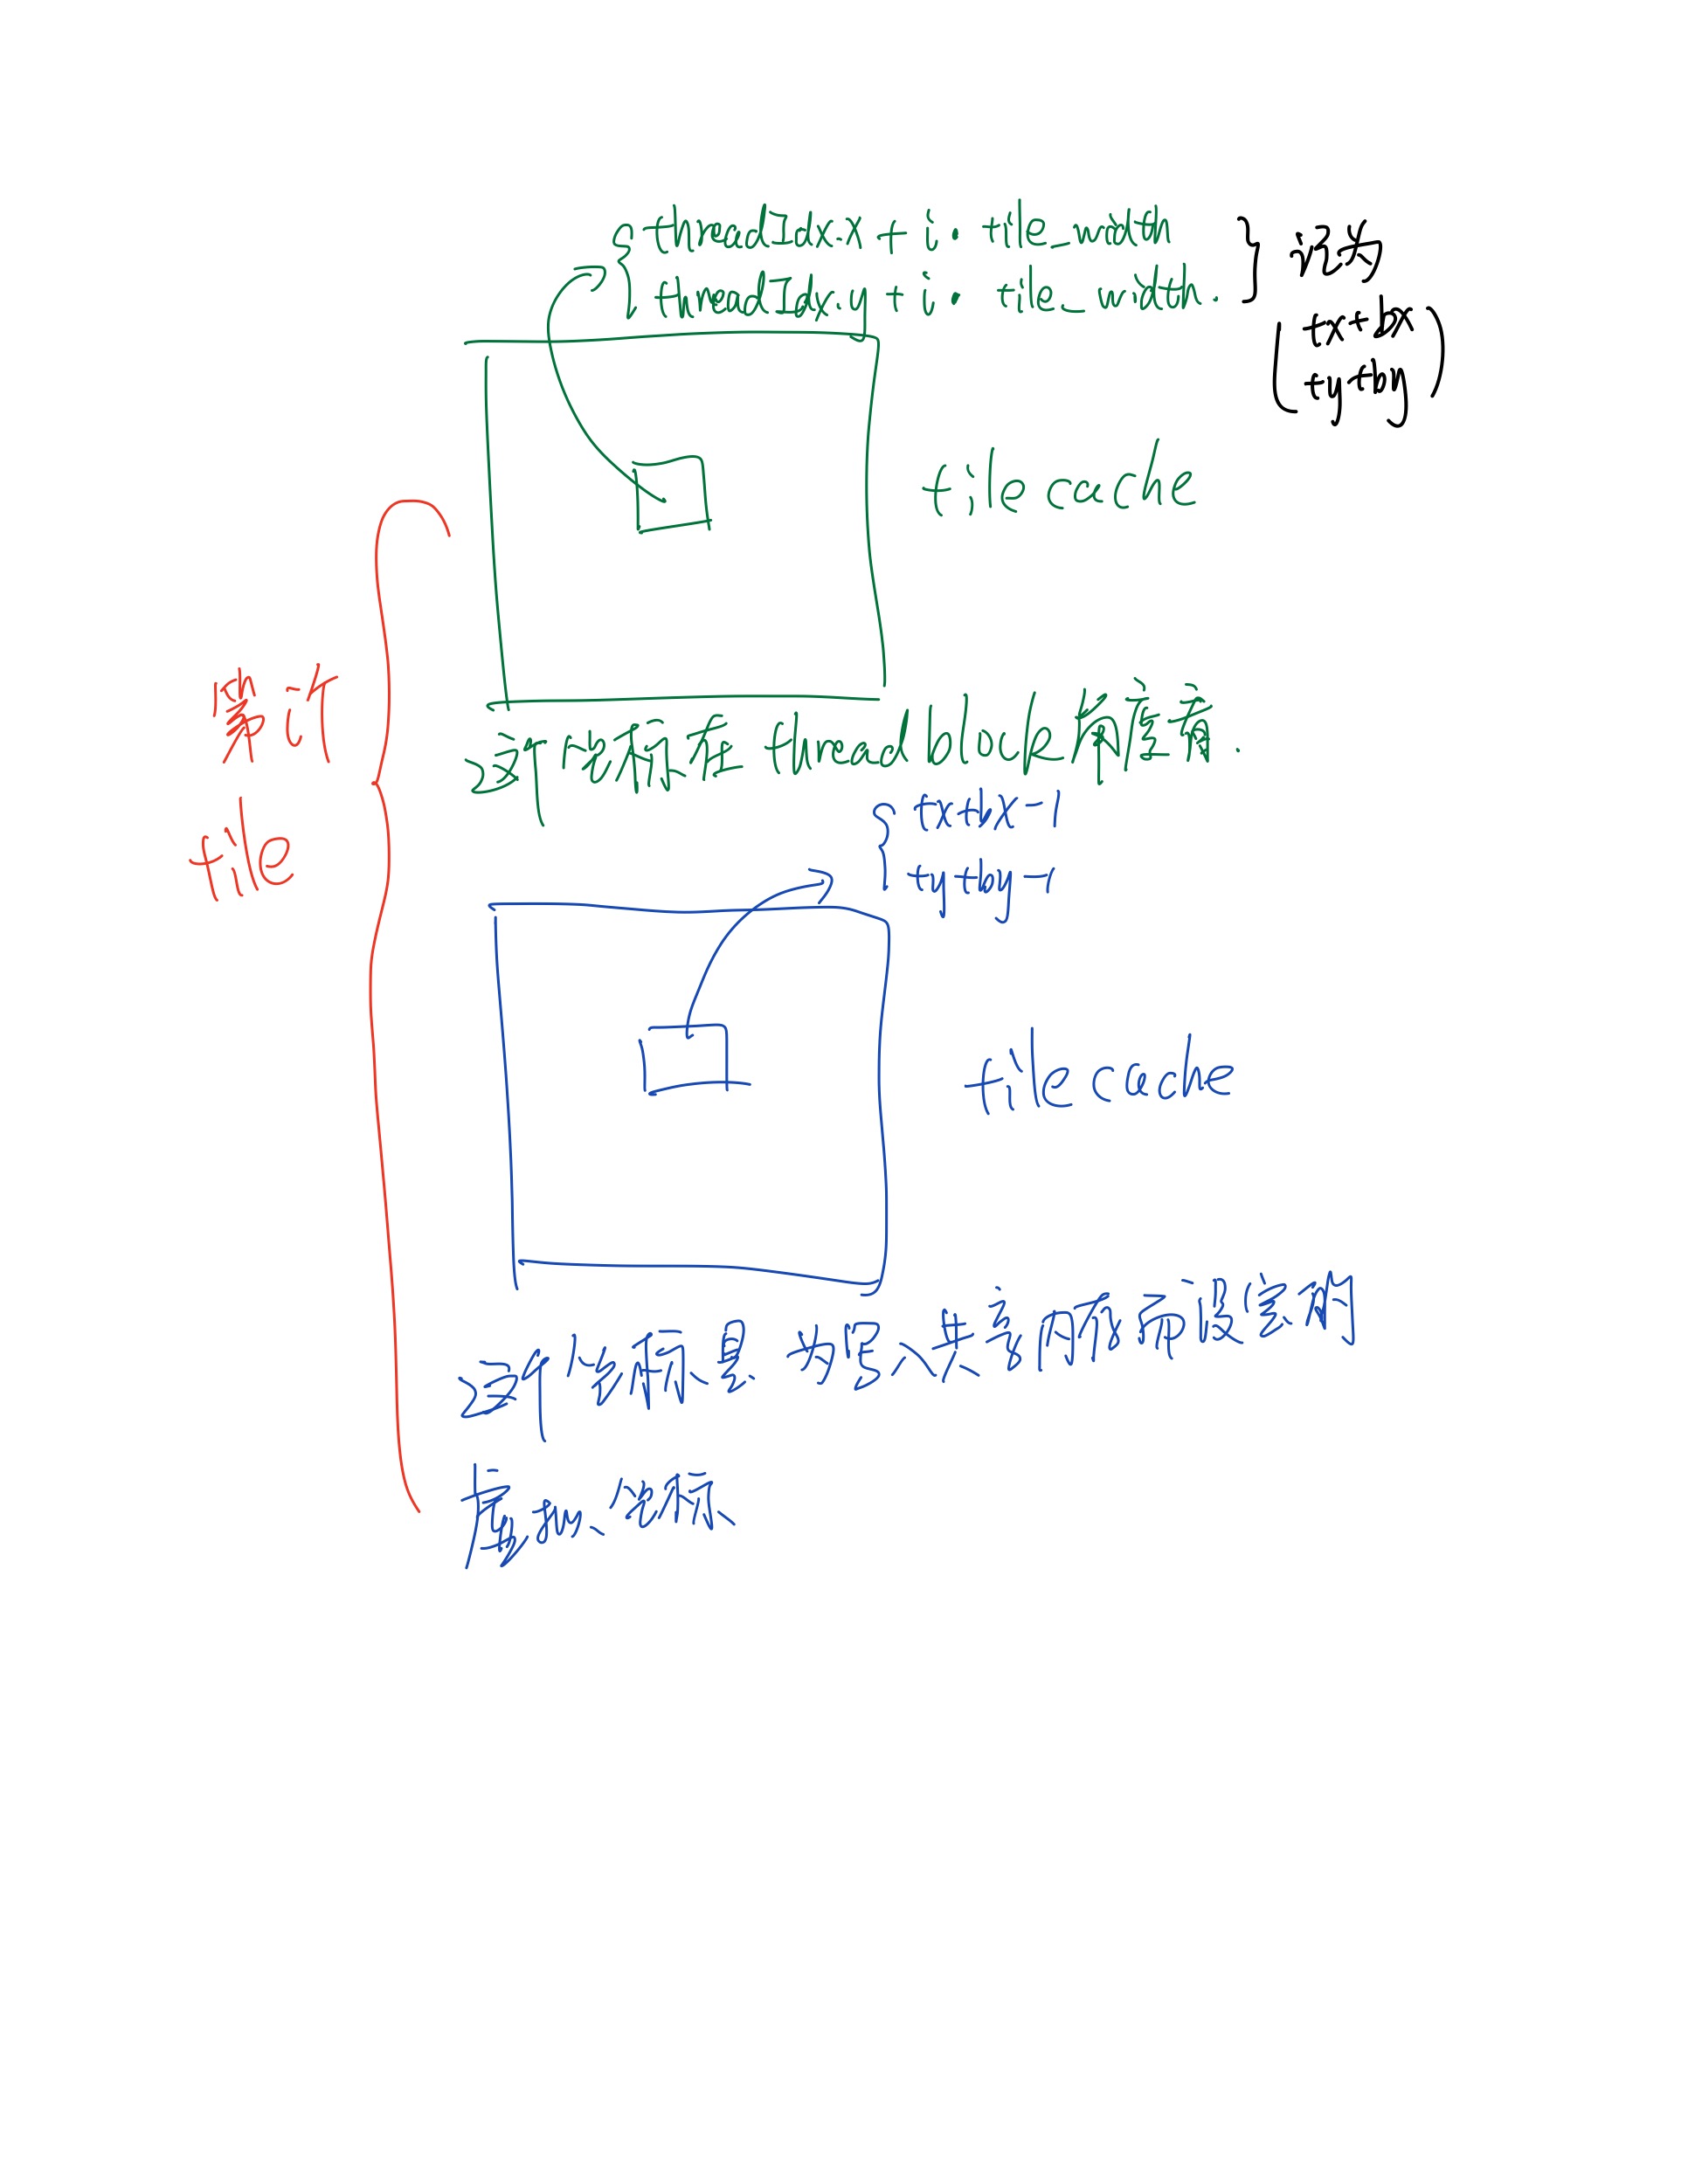 threadIdx.x + i · tile_width
threadIdx.y + i · tile_width.
记为
tx+bx
ty+by
tile cache
第i个
tile
这个坐标在 thread block 角度看.
tx+bx-1
ty+by-1
tile cache
这个坐标是 为写入共享内存而设定的
虚拟坐标